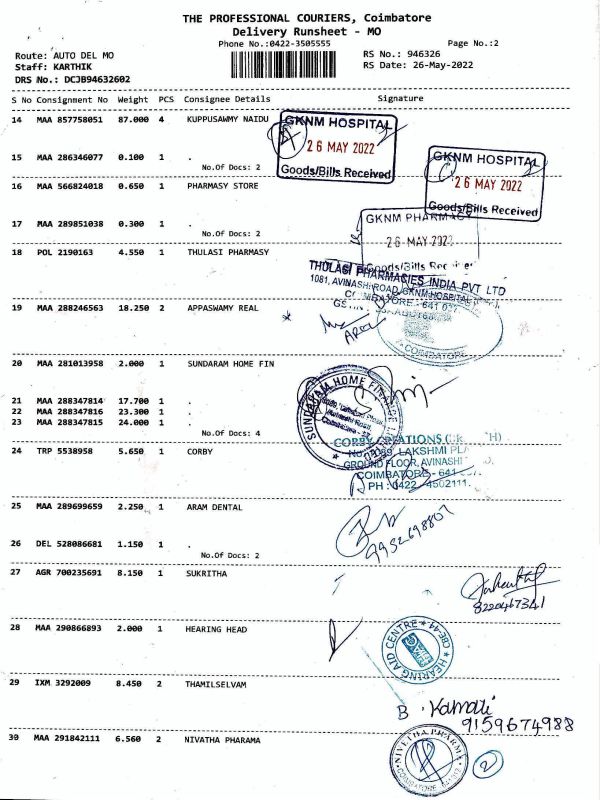 THE PROFESSIONAL COURIERS, Coimbatore
Delivery Runsheet - MO
Phone No.:0422-3505555
Page No.:2
Route: AUTO DEL MO
RS No.: 946326
Staff: KARTHIK
RS Date: 26-May-2022
DRS No.: DCJB94632602
S No Consignment No Weight PCS Consignee Details Signature
14 MAA 857758051 87.000 4 KUPPUSAWMY NAIDU
GKNM HOSPITAL
26 MAY 2022
Goods/Bills Received
15 MAA 286346077 0.100 1 .
No.Of Docs: 2
GKNM HOSPITAL
26 MAY 2022
Goods/Bills Received
16 MAA 566824018 0.650 1 PHARMASY STORE
17 MAA 289851038 0.300 1 .
No.Of Docs: 2
GKNM PHARMACY
26 MAY 2022
Goods/Bills
18 POL 2190163 4.550 1 THULASI PHARMASY
THULASI PHARMACIES INDIA PVT LTD
1081, AVINASHI ROAD, GKNM HOSPITAL
COIMBATORE - 641 037
19 MAA 288246563 18.250 2 APPASWAMY REAL
COIMBATORE
20 MAA 281013958 2.000 1 SUNDARAM HOME FIN
SUNDARAM HOME FINANCE
21 MAA 288347814 17.700 1 .
22 MAA 288347816 23.300 1 .
23 MAA 288347815 24.000 1 .
No.Of Docs: 4
24 TRP 5538958 5.650 1 CORBY
CORBY CREATIONS
LAKSHMI
GROUND FLOOR, AVINASHI
COIMBATORE - 641
PH : 0422 4502111
25 MAA 289699659 2.250 1 ARAM DENTAL
9952698807
26 DEL 528086681 1.150 1 .
No.Of Docs: 2
27 AGR 700235691 8.150 1 SUKRITHA
8220467341
28 MAA 290866893 2.000 1 HEARING HEAD
HEARING AID CENTRE * CBE-44 *
29 IXM 3292009 8.450 2 THAMILSELVAM
B. Kamali
9159674988
30 MAA 291842111 6.560 2 NIVATHA PHARAMA
NIVETHA PHARMA
COIMBATORE
2